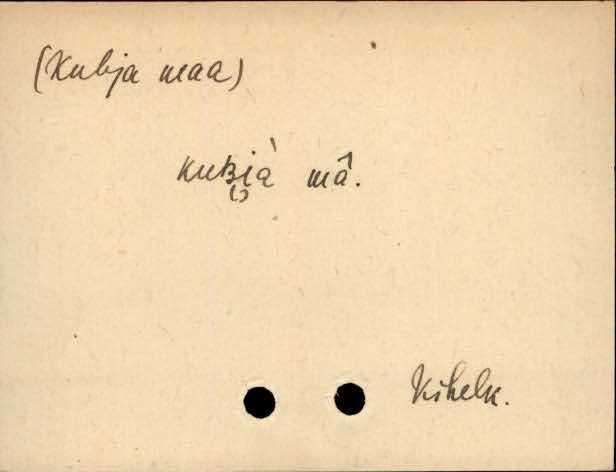 (Kubja maa)
kuʙi̯à mâ.
Kihelk.